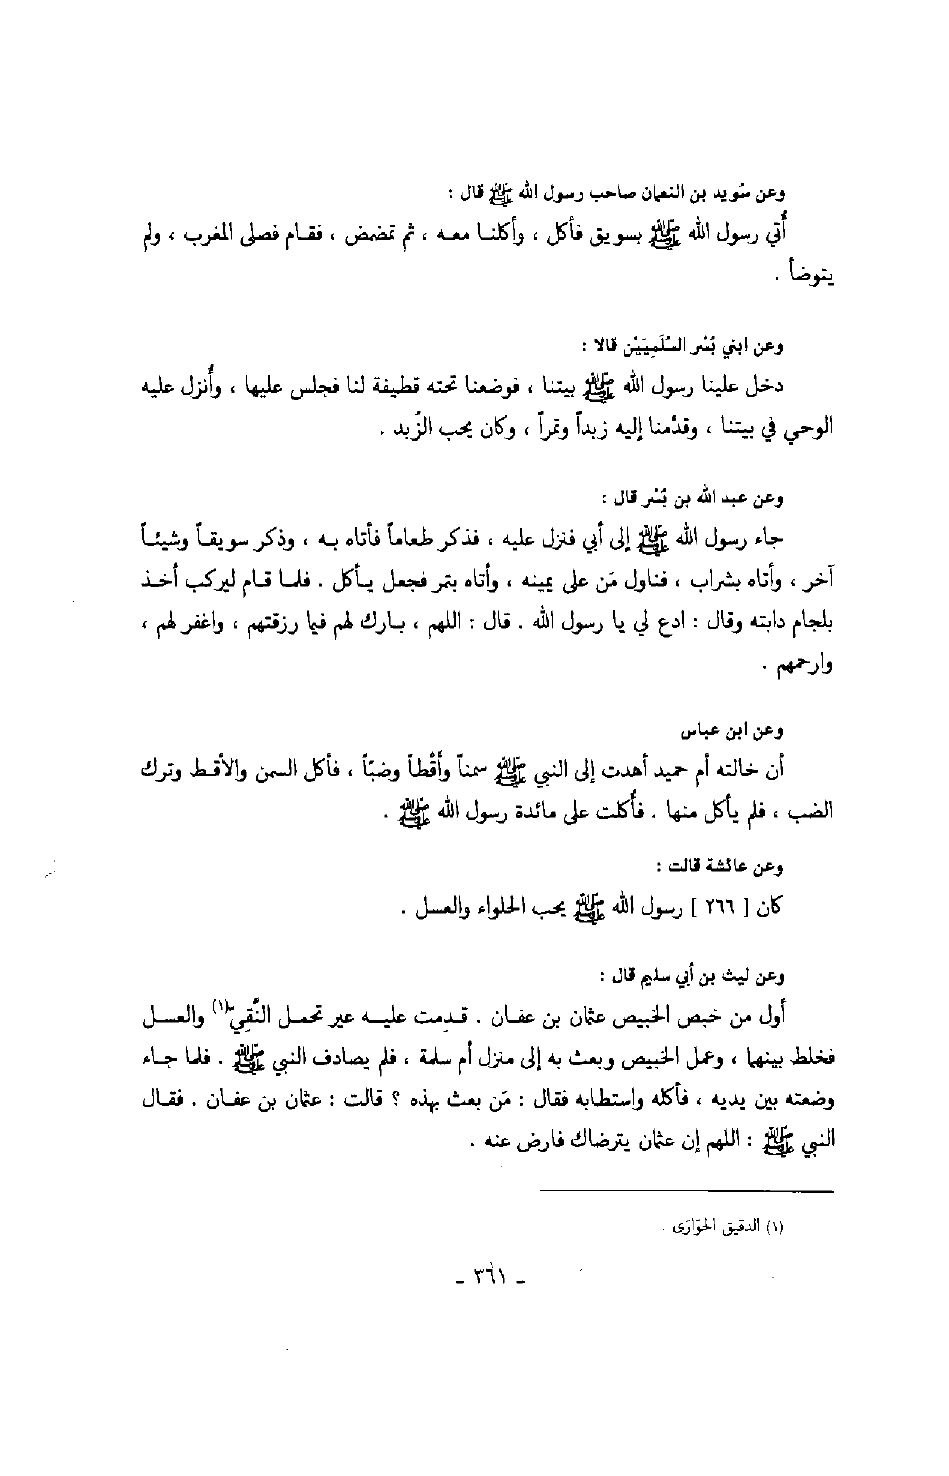 وعن سُويد بن النعمان صاحب رسول الله ﷺ قال :
أُتي رسول الله ﷺ بسويق فأكل ، وأكلنا معه ، ثم تمضمض ، فقام فصلى المغرب ، ولم
يتوضأ .
وعن ابني بُسْر السُّلَمِيَيْن قالا :
دخل علينا رسول الله ﷺ بيتنا ، فوضعنا تحته قطيفة لنا فجلس عليها ، وأُنزل عليه
الوحي في بيتنا ، وقدّمنا إليه زبداً وتمراً ، وكان يحب الزُبد .
وعن عبد الله بن بُسْر قال :
جاء رسول الله ﷺ إلى أبي فنزل عليه ، فذكر طعاماً فأتاه به ، وذكر سويقاً وشيئاً
آخر ، وأتاه بشراب ، فناول مَن على يمينه ، وأتاه بتمر فجعل يأكل . فلما قام ليركب أخذ
بلجام دابته وقال : ادع لي يا رسول الله . قال : اللهم ، بارك لهم فيما رزقتهم ، واغفر لهم ،
وارحمهم .
وعن ابن عباس
أن خالته أم حميد أهدت إلى النبي ﷺ سمناً وأَقْطاً وضبّاً ، فأكل السمن والأقط وترك
الضب ، فلم يأكل منها . فأُكلت على مائدة رسول الله ﷺ .
وعن عائشة قالت :
كان [ ٢٦٦ ] رسول الله ﷺ يحب الحلواء والعسل .
وعن ليث بن أبي سليم قال :
أول من خبص الخبيص عثمان بن عفان . قدمت عليه عير تحمل النَّقِيَّ(١) والعسل
فخلط بينهما ، وعمل الخبيص وبعث به إلى منزل أم سلمة ، فلم يصادف النبي ﷺ . فلما جاء
وضعته بين يديه ، فأكله واستطابه فقال : مَن بعث بهذه ؟ قالت : عثمان بن عفان . فقال
النبي ﷺ : اللهم إن عثمان يترضاك فارض عنه .
(١) الدقيق الحوّارَى .
- ٣٦١ -